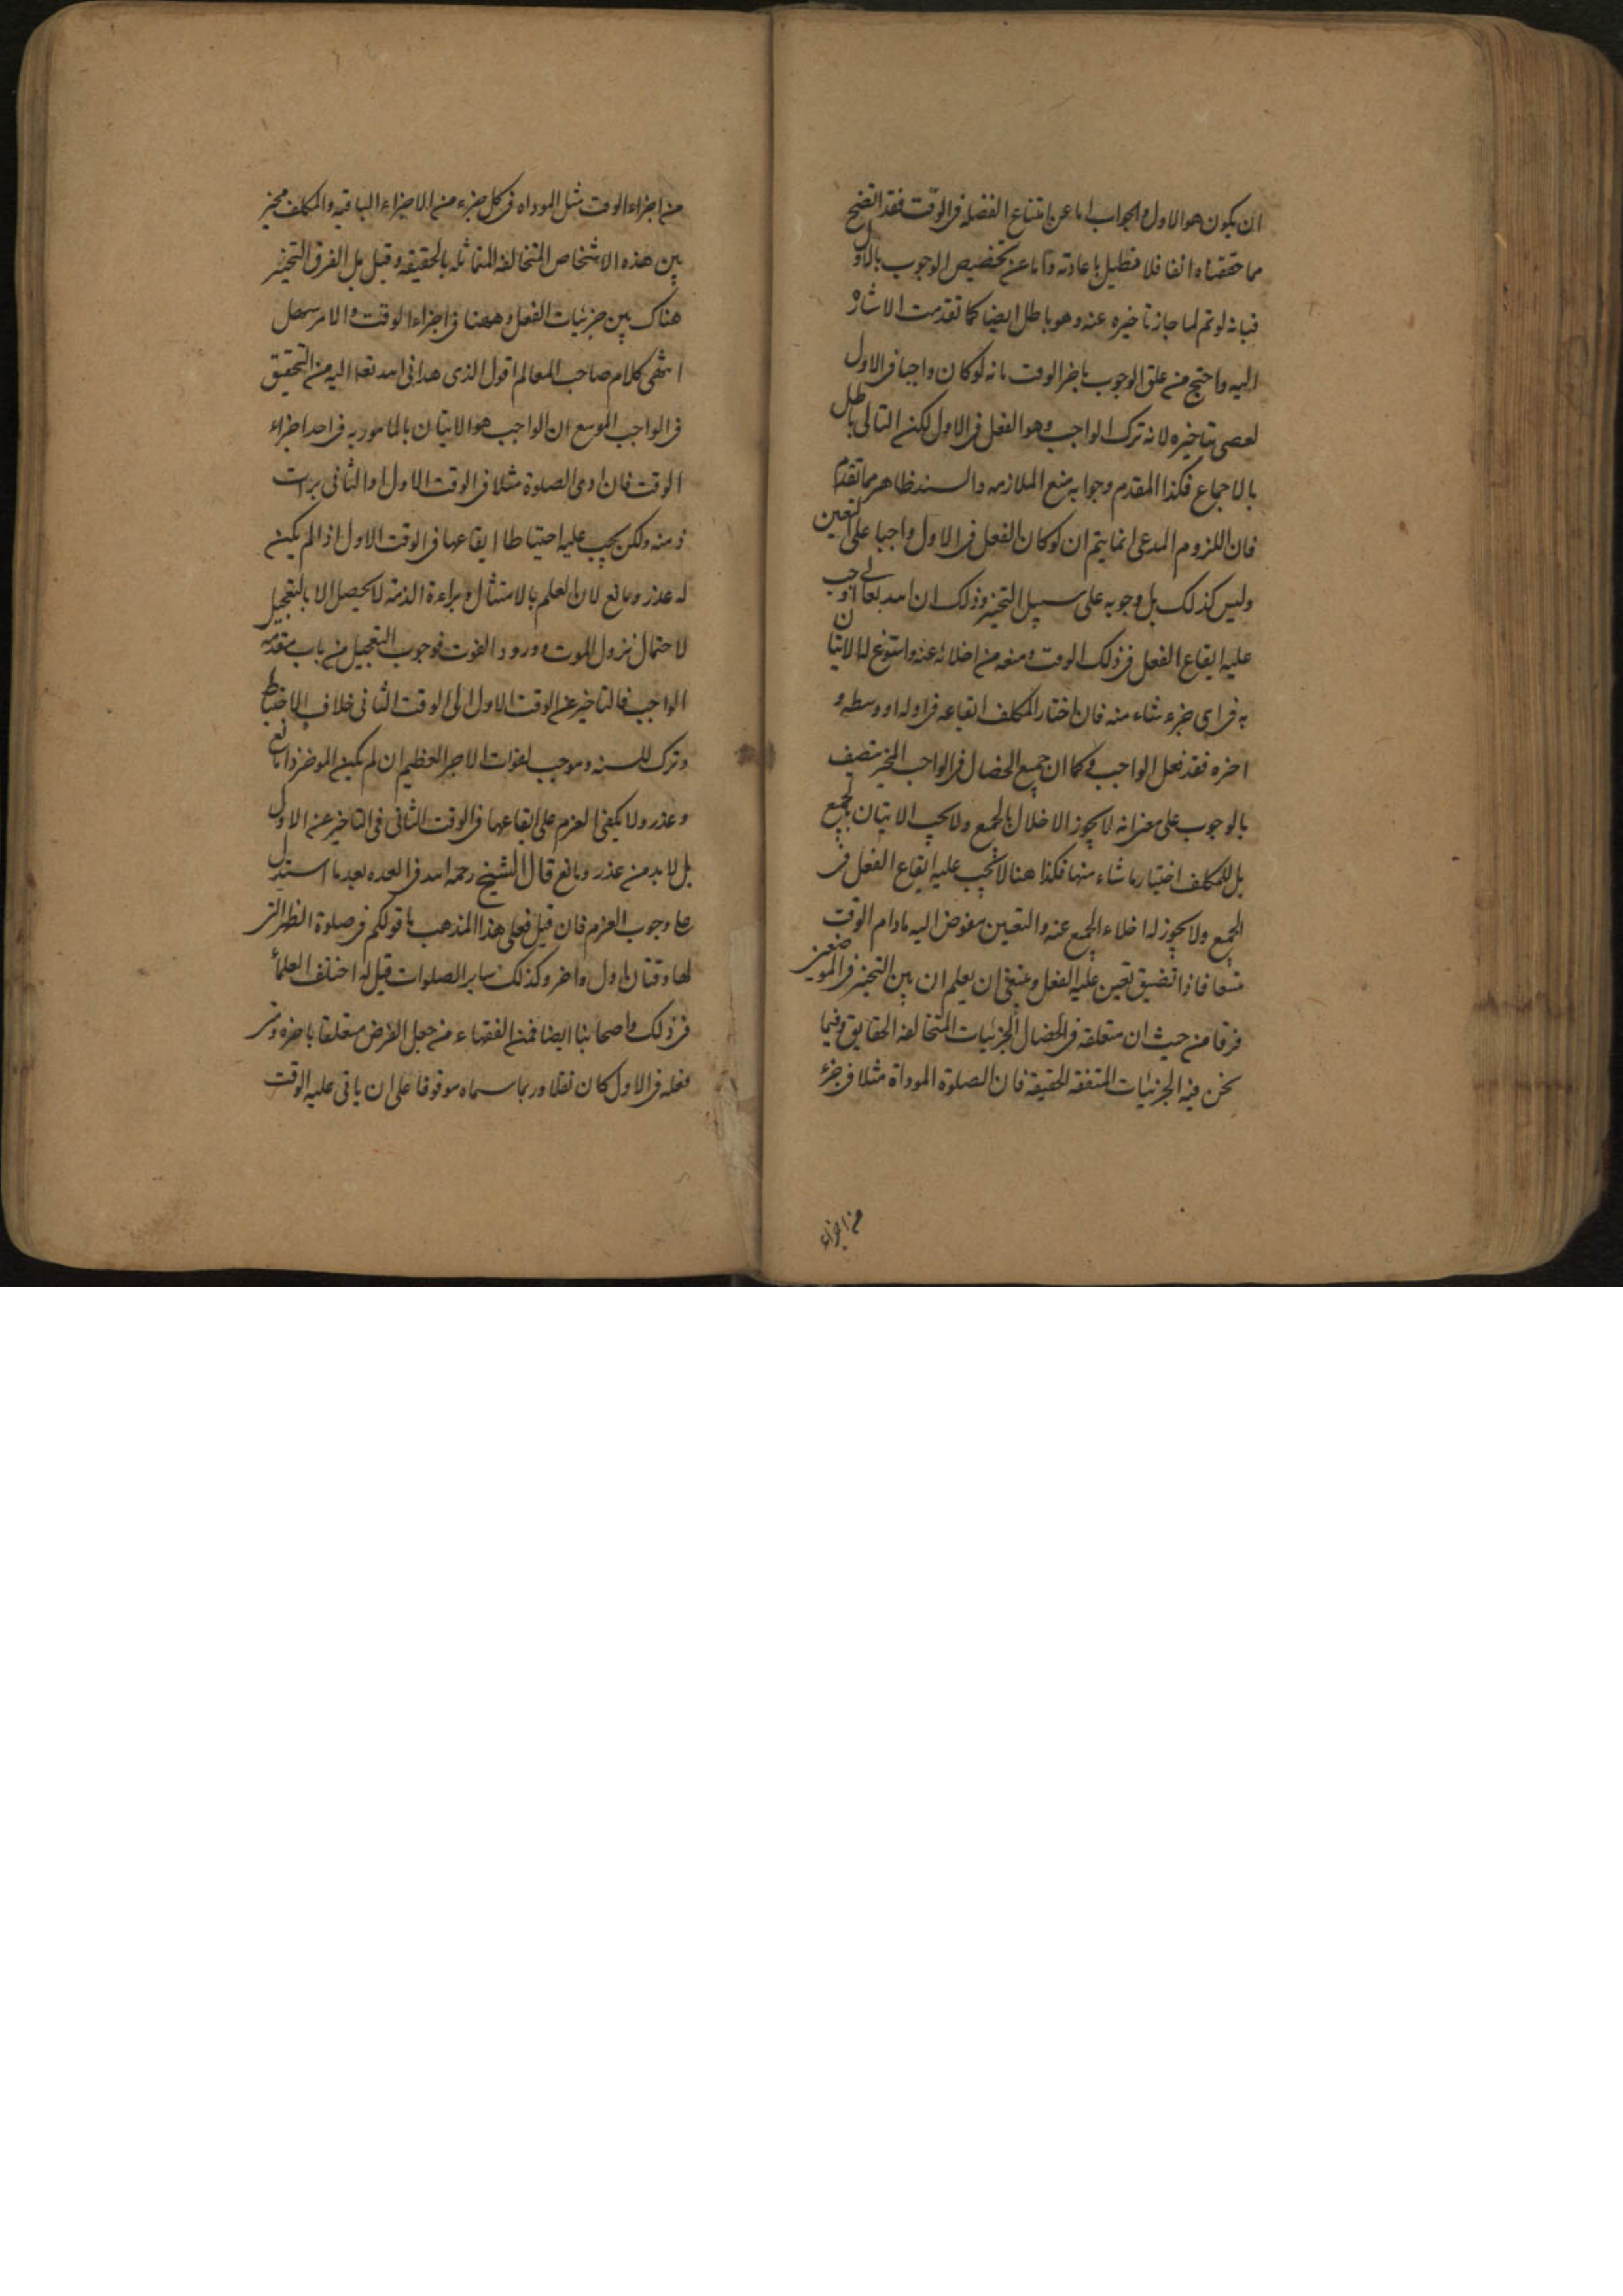 ان يكون هو الاول والجواب اما عن امتناع الفضلة فى الوقت فقد اتضح
مما حققناه انفا فلا نطيل باعادته واما عن تخصيص الوجوب بالاول
فبانه لو تم لما جاز تاخيره عنه وهو باطل ايضا كما تقدمت الاشارة
اليه واحتج من علق الوجوب باخر الوقت بانه لو كان واجبا فى الاول
لعصى بتاخيره لانه ترك الواجب وهو الفعل فى الاول لكن التالى باطل
بالاجماع فكذا المقدم وجوابه منع الملازمه والسند ظاهر مما تقدم
فان اللزوم المدعى انما يتم ان لو كان الفعل فى الاول واجبا على التعين
وليس كذلك بل وجوبه على سبيل التخيير وذلك ان الله تعالى اوجب
عليه ايقاع الفعل فى ذلك الوقت ومنعه من اخلائه عنه واستوغ له الاتيان
به فى اى جزء شاء منه فان اختار المكلف ايقاعه فى اوله او وسطه و
اخره فقد فعل الواجب وكما ان جميع الخصال فى الواجب المخير يتصف
بالوجوب على معنى انه لا يجوز الاخلال بالجميع ولا يجب الاتيان بالجميع
بل للمكلف اختيار ما شاء منها فكذا هنا لا تجب عليه ايقاع الفعل فى
الجميع ولا يجوز له اخلاء الجميع عنه والتعيين مفوض اليه مادام الوقت
متسعا فاذا تضيق تعين عليه الفعل وينبغى ان يعلم ان بين التخيير فى الموضعين
فرقا من حيث ان متعلقه فى الخصال الجزئيات المتخالفه الحقايق وفيما
نحن فيه الجزئيات المتفقه الحقيقة فان الصلوة الموداة مثلا فى جزء
من اجزاء
من اجزاء الوقت مثل الموداه فى كل جزء من الاجزاء الباقيه والمكلف مخير
بين هذه الاشخاص المتخالفه المتماثله بالحقيقه وقيل بل الفرق التخيير
هناك بين جزئيات الفعل وههنا فى اجزاء الوقت والامر سهل
انتهى كلام صاحب المعالم اقول الذى هدانى الله تعا اليه من التحقيق
فى الواجب الموسع ان الواجب هو الاتيان بالمامور به فى احد اجزاء
الوقت فان ادى الصلوة مثلا فى الوقت الاول او الثانى برات
ذمته ولكن يجب عليه احتياطا ايقاعها فى الوقت الاول اذا لم يكن
له عذر ومانع لان العلم بالامتثال وبراءة الذمة لا يحصل الا بالتعجيل
لاحتمال نزول الموت وورود الفوت فوجوب التعجيل من باب مقدمه
الواجب فالتاخير عن الوقت الاول الى الوقت الثانى خلاف الاحتياط
وترك للسنه وموجب لفوات الاجر العظيم ان لم يكن الموخر ذا مانع
وعذر ولا يكفى العزم على ايقاعها فى الوقت الثانى فى التاخير عن الاول
بل لا بد من عذر ومانع قال الشيخ رحمه الله فى العده بعد ما استدل
على وجوب العزم فان قيل فعلى هذا المذهب ما قولكم فى صلوة الظهر التى
لها وقتان اول واخر وكذلك ساير الصلوات قيل له اختلف العلماء
فى ذلك واصحابنا ايضا فمن الفقهاء من جعل الفرض متعلقا باخره ومتى
فعله فى الاول كان نفلا وربما سماه موقوفا على ان ياتى عليه الوقت